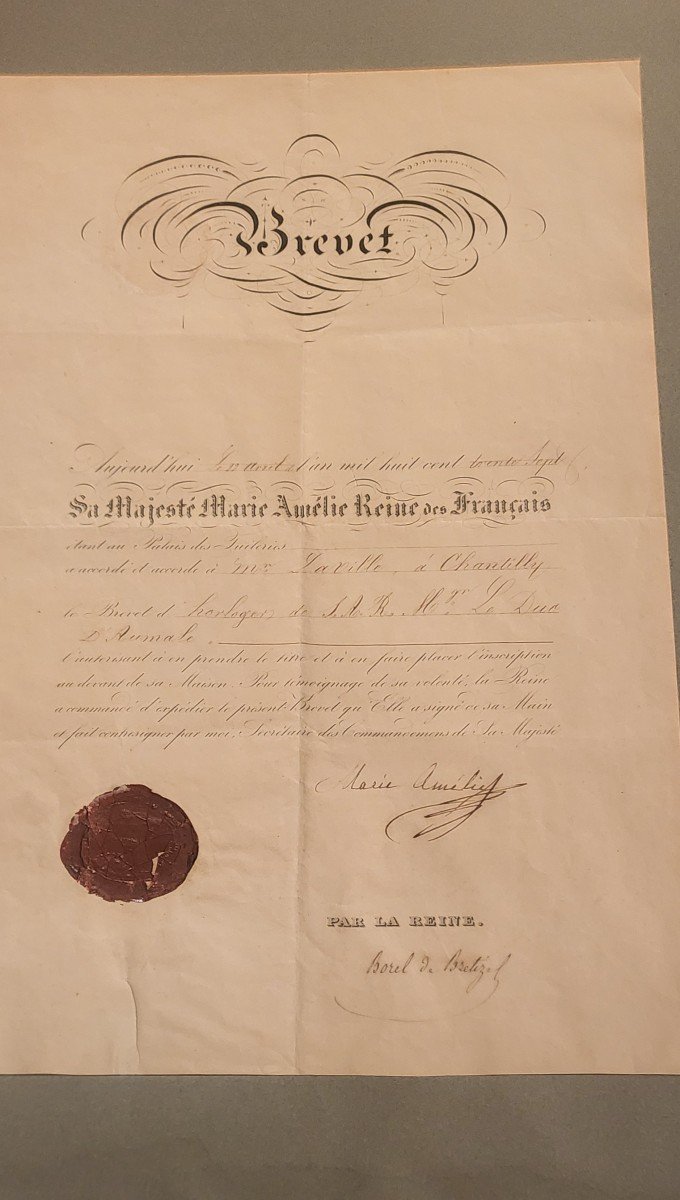 Brevet
Aujourd'hui le 12 avril l'an mil huit cent trente Sept
Sa Majesté Marie Amélie Reine des Français
étant au Palais des Tuileries
a accordé et accorde à Mr. Laville, à Chantilly
le Brevet d'horloger de S. A. R. Mgr. Le Duc
D'Aumale.
l'autorisant à en prendre le titre et à en faire placer l'inscription
au devant de sa Maison. Pour témoignage de sa volonté, la Reine
a commandé d'expédier le présent Brevet qu'Elle a signé de sa Main
et fait contresigner par moi, Secrétaire des Commandemens de Sa Majesté
Marie Amélie
PAR LA REINE.
Borel de Bretizel